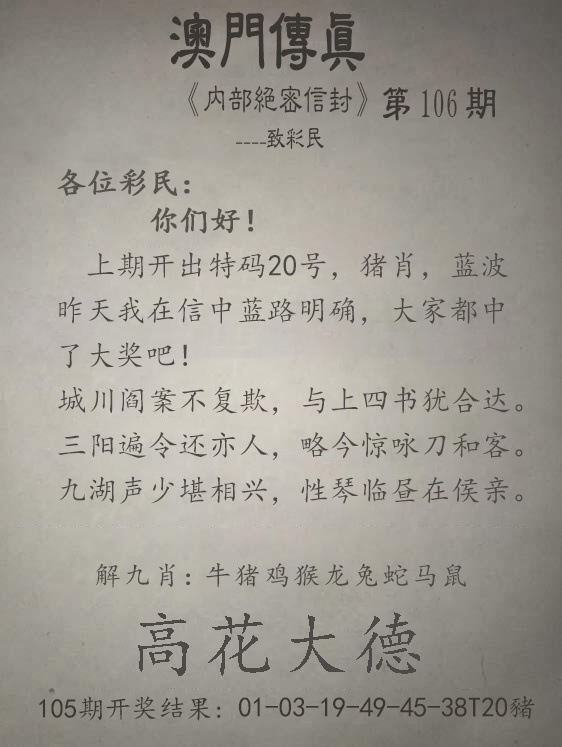 澳門傳眞
《内部絕密信封》第106期
----致彩民
各位彩民：
你们好！
上期开出特码20号，猪肖，蓝波
昨天我在信中蓝路明确，大家都中
了大奖吧！
城川阎案不复欺，与上四书犹合达。
三阳遍令还亦人，略今惊咏刀和客。
九湖声少堪相兴，性琴临昼在侯亲。
解九肖：牛猪鸡猴龙兔蛇马鼠
高花大德
105期开奖结果：01-03-19-49-45-38T20豬